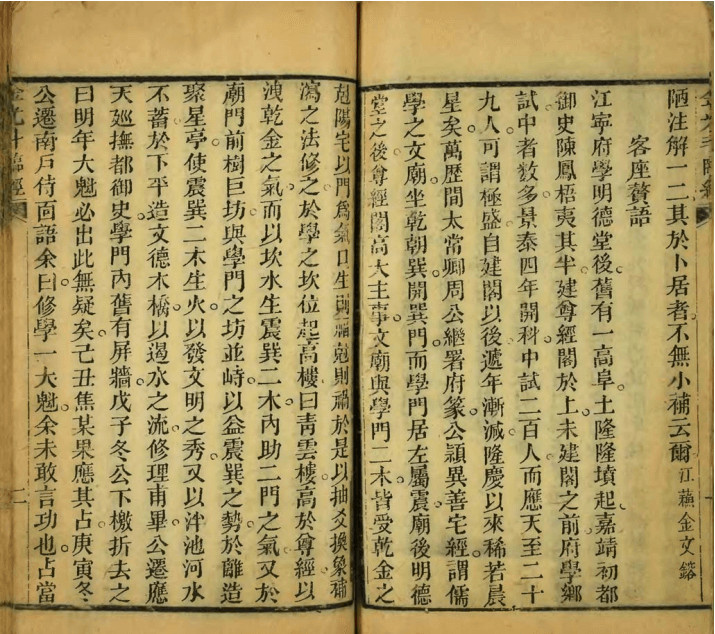 陋注解一二其於卜居者不無小補云爾 江蘇金文鎔
客座贅語
江寧府學明德堂後舊有一高阜土隆隆墳起嘉靖初都
御史陳鳳梧夷其半建尊經閣於上未建閣之前府學鄉
試中者数多景泰四年開科中試二百人而應天至二十
九人可謂極盛自建閣以後遞年漸減隆慶以來稀若晨
星矣萬歷間太常卿周公繼署府篆公頴異善宅經謂儒
學之文廟坐乾朝巽開巽門而學門居左屬震廟後明德
堂之後尊經閣高大主事文廟與學門二木皆受乾金之
尅陽宅以門爲氣口生則福尅則禍於是以抽爻換象補
瀉之法修之於學之坎位起高樓曰青雲樓高於尊經以
洩乾金之氣而以坎水生震巽二木內助二門之氣又於
廟門前樹巨坊與學門之坊並峙以益震巽之勢於離造
聚星亭使震巽二木生火以發文明之秀又以泮池河水
不蓄於下平造文德木橋以遏水之流修理甫畢公遷應
天巡撫都御史學門內舊有屏牆戊子冬公下檄折去之
曰明年大魁必出此無疑矣己丑焦某果應其占庚寅冬
公遷南戶侍面語余曰修學一大魁余未敢言功也占當
金光斗臨經 二